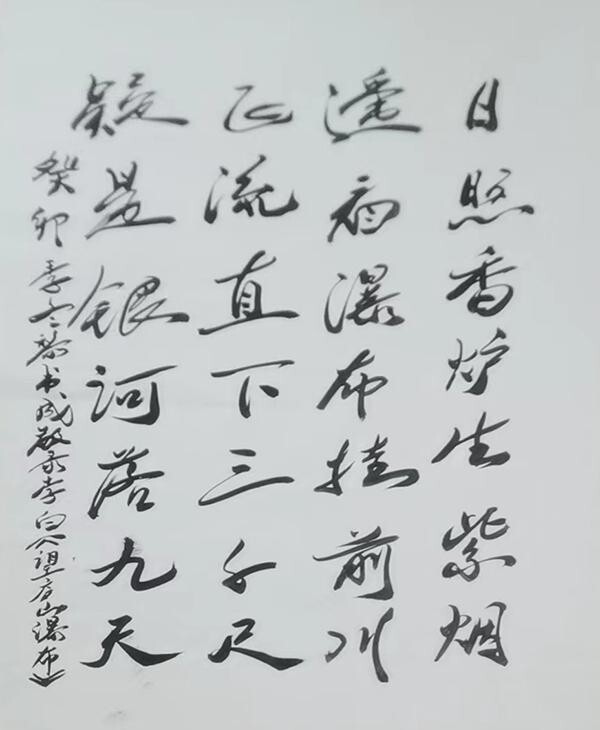 日照香炉生紫烟
遥看瀑布挂前川
飞流直下三千尺
疑是银河落九天
癸卯季冬书成敬录李白《望庐山瀑布》